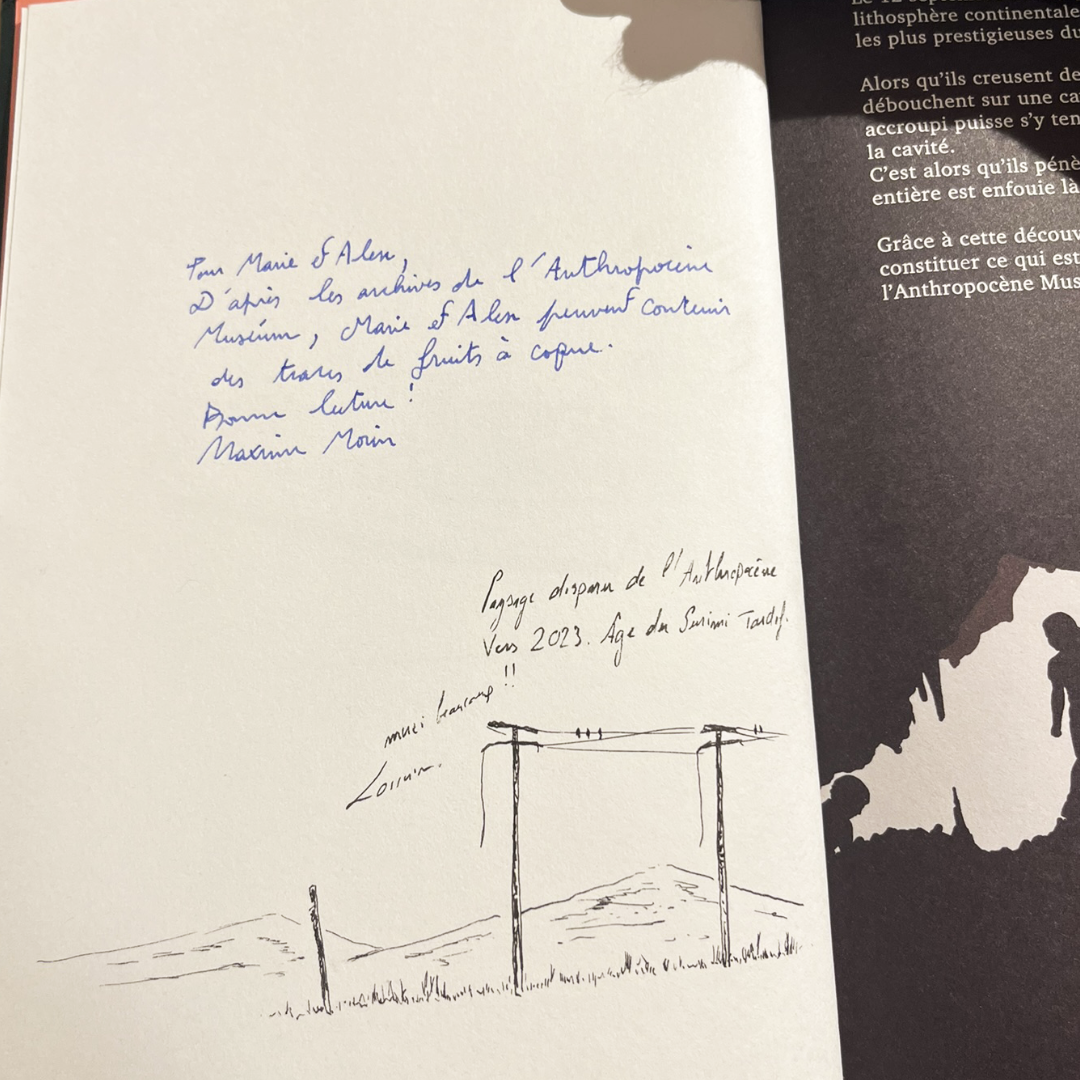 Pour Marie et Alex,
D'après les archives de l'Anthropocène
Muséum, Marie et Alex peuvent contenir
des traces de fruits à coque.
Bonne lecture !
Maxime Morin
Paysage disparu de l'Anthropocène
Vers 2023. Âge du Surimi Tardif.
merci beaucoup !!
lithosphère continentale
les plus prestigieuses du
Alors qu'ils creusent de
débouchent sur une ca
accroupi puisse s'y ten
la cavité.
C'est alors qu'ils pénè
entière est enfouie là
Grâce à cette découv
constituer ce qui est
l'Anthropocène Mus